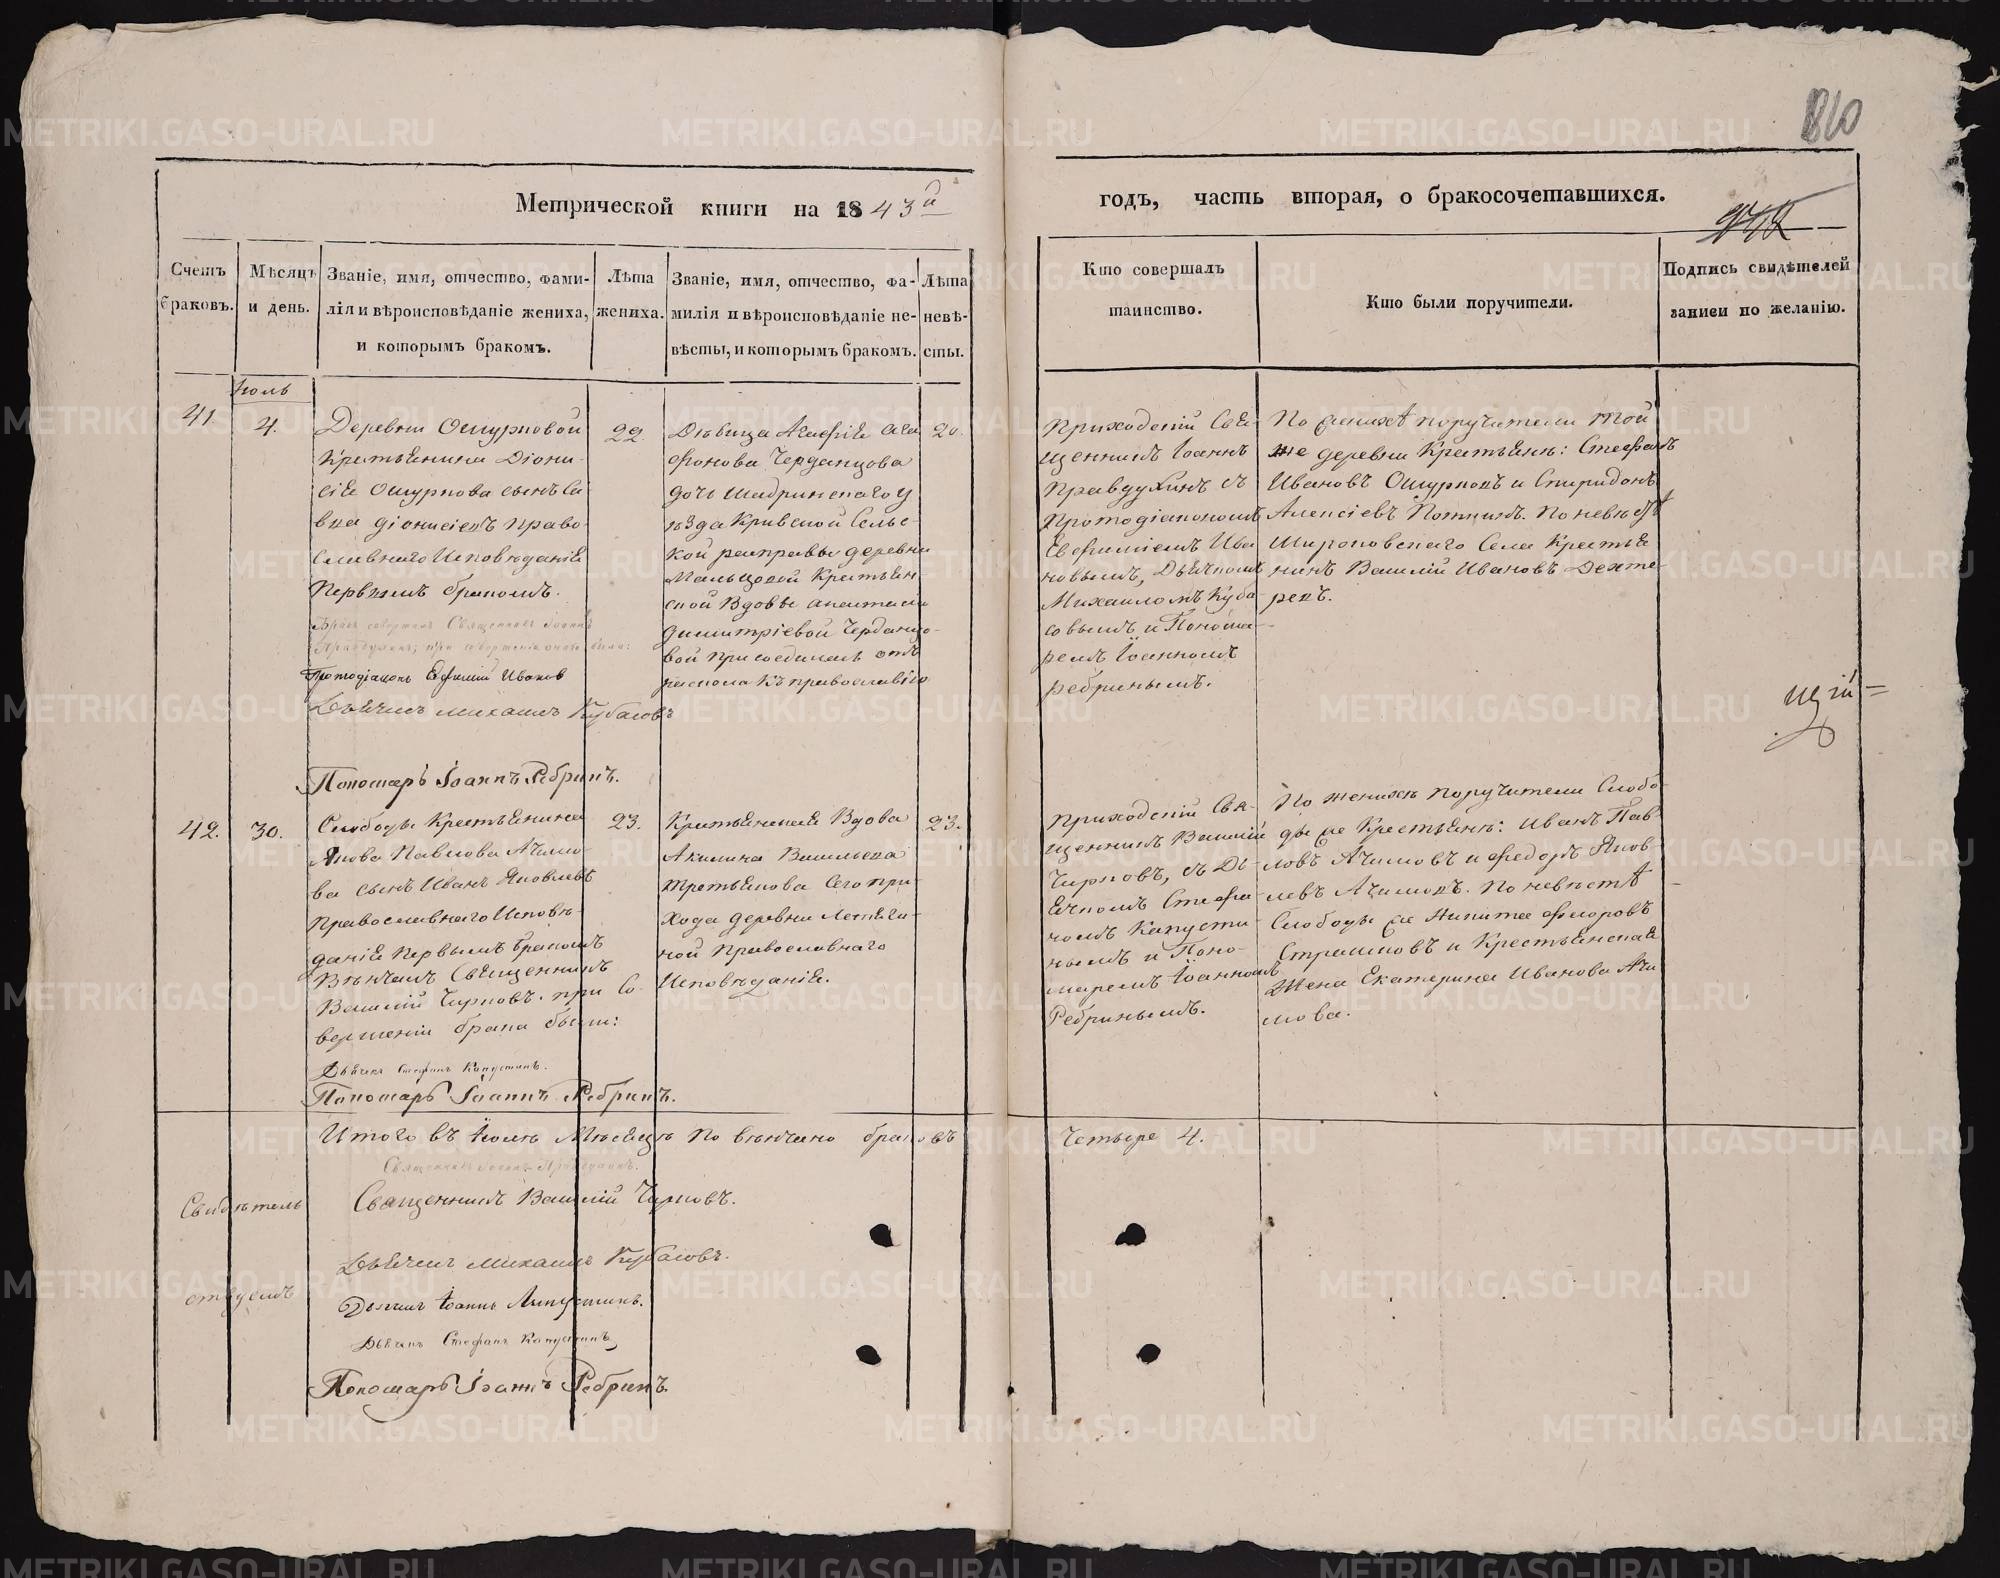 810
Метрической книги на 1843й
годъ, часть вторая, о бракосочетавшихся.
Счетъ браковъ.
Мѣсяцъ и день.
Званіе, имя, отчество, фами-
лія и вѣроисповѣданіе жениха,
и которымъ бракомъ.
Лѣта
жениха.
Званіе, имя, отчество, фа-
милія и вѣроисповѣданіе не-
вѣсты, и которымъ бракомъ.
Лѣта
невѣ-
сты.
Кто совершалъ
таинство.
Кто были поручители.
Подпись свидѣтелей
записи по желанію.
Іюль
41.
4.
Деревни Ошурковой
Крестьянина Діони-
сія Ошуркова сынъ Са
ва Діонисіевъ право-
славнаго Исповѣданія
Первымъ бракомъ.
Бракъ совершалъ Священникъ Іоаннъ
Правдухинъ; при совершеніи онаго были:
Протодіаконъ Ефимій Ивановъ
Дьячекъ Михаилъ Кубасовъ
Пономарь Іоаннъ Ребринъ.
22.
Дѣвица Агафія Ага
фонова Черданцова
дочь Шадринскаго у
ѣзда Кривской Сельс-
кой расправы деревни
Мальцовой Крестьян-
ской Вдовы Анастасіи
Димитріевой Черданцо-
вой присоединена отъ
раскола къ православію
20.
Приходскій Свя-
щенникъ Іоаннъ
Правдухинъ съ
Протодіакономъ
Ефиміемъ Ива
новымъ, Дьячкомъ
Михаиломъ Куба-
совымъ и Понома-
ремъ Іоанномъ
Ребринымъ.
По женихѣ поручители той
же деревни Крестьяне: Стефанъ
Ивановъ Ошурковъ и Спиридонъ
Алексіевъ По невѣстѣ
Широковскаго Села Крестья
нинъ Василій Ивановъ Дехте-
ревъ.
42.
30.
Слободы Крестьянина
Якова Павлова Ачимо-
ва сынъ Иванъ Яковлевъ
Православнаго Исповѣ-
данія Первымъ бракомъ
Вѣнчалъ Священникъ
Василій Чирковъ. при Со-
вершеніи брака были:
Дьячекъ Стефанъ Капустинъ.
Пономарь Іоаннъ Ребринъ.
23.
Крестьянская Вдова
Акилина Васильева
Третьякова Сего при-
хода деревни
ной Православнаго
Исповѣданія.
23.
Приходскій Свя-
щенникъ Василій
Чирковъ, съ Дь-
ячкомъ Стефа-
номъ Капусти
нымъ и Поно-
маремъ Іоанномъ
Ребринымъ.
По женихѣ поручители Слобо-
ды же Крестьяне: Иванъ Пав-
ловъ Ачимовъ и Федоръ Яков-
левъ Ачимовъ. По невѣстѣ
Слободы же Никита Федоровъ
Страшковъ и Крестьянская
Жена Екатерина Иванова Ачи
мова.
цій
Итого въ Іюлѣ Мѣсяцѣ по вѣнчано браковъ Четыре 4.
Священникъ Іоаннъ Правдухинъ.
Свидѣтель
Священникъ Василій Чирковъ.
Дьячекъ Михаилъ Кубасовъ.
Дьячекъ Іоаннъ
Дьячекъ Стефанъ Капустинъ
Пономарь Іоаннъ Ребринъ.
METRIKI.GASO-URAL.RU